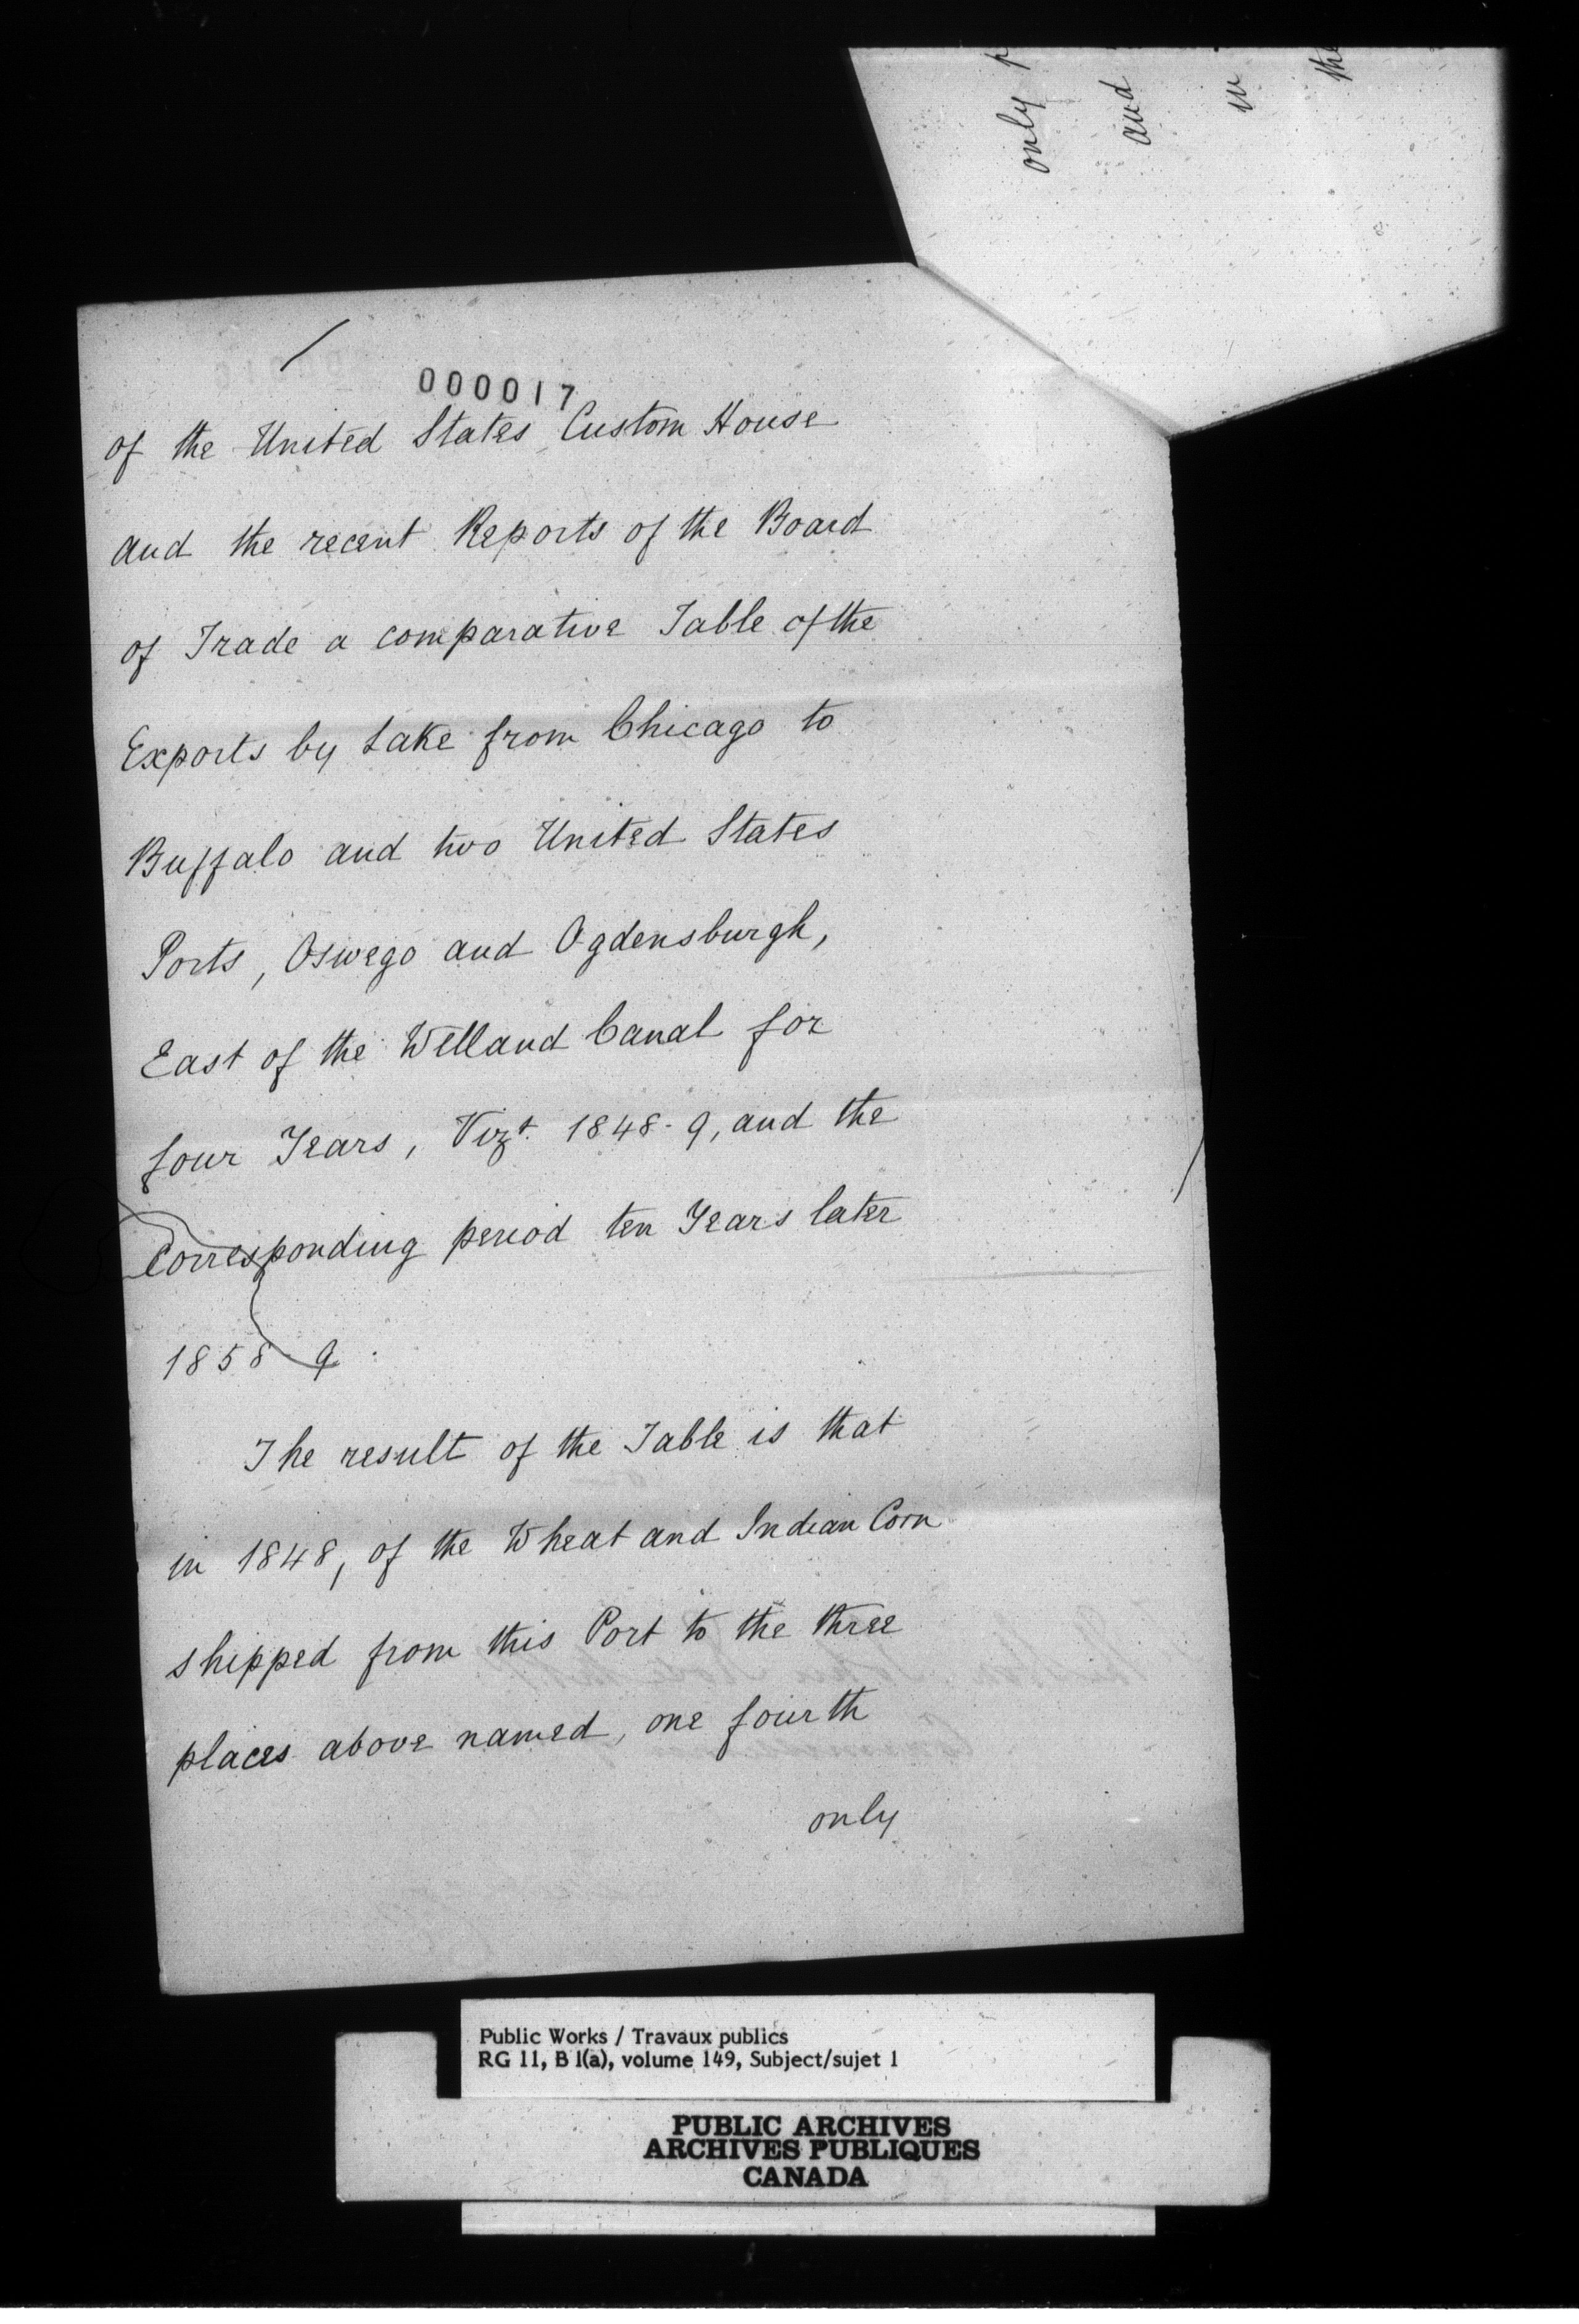 only
and
in
the
000017
of the United States Custom House
and the recent Reports of the Board
of Trade a comparative Table of the
Exports by Lake from Chicago to
Buffalo and two United States
Ports, Oswego and Ogdensburgh,
East of the Welland Canal for
four Years, Vizt. 1848-9, and the
Corresponding period ten Years later
1858-9.
The result of the Table is that
in 1848, of the Wheat and Indian Corn
shipped from this Port to the three
places above named, one fourth
only
Public Works / Travaux publics
RG 11, B 1(a), volume 149, Subject/sujet 1
PUBLIC ARCHIVES
ARCHIVES PUBLIQUES
CANADA